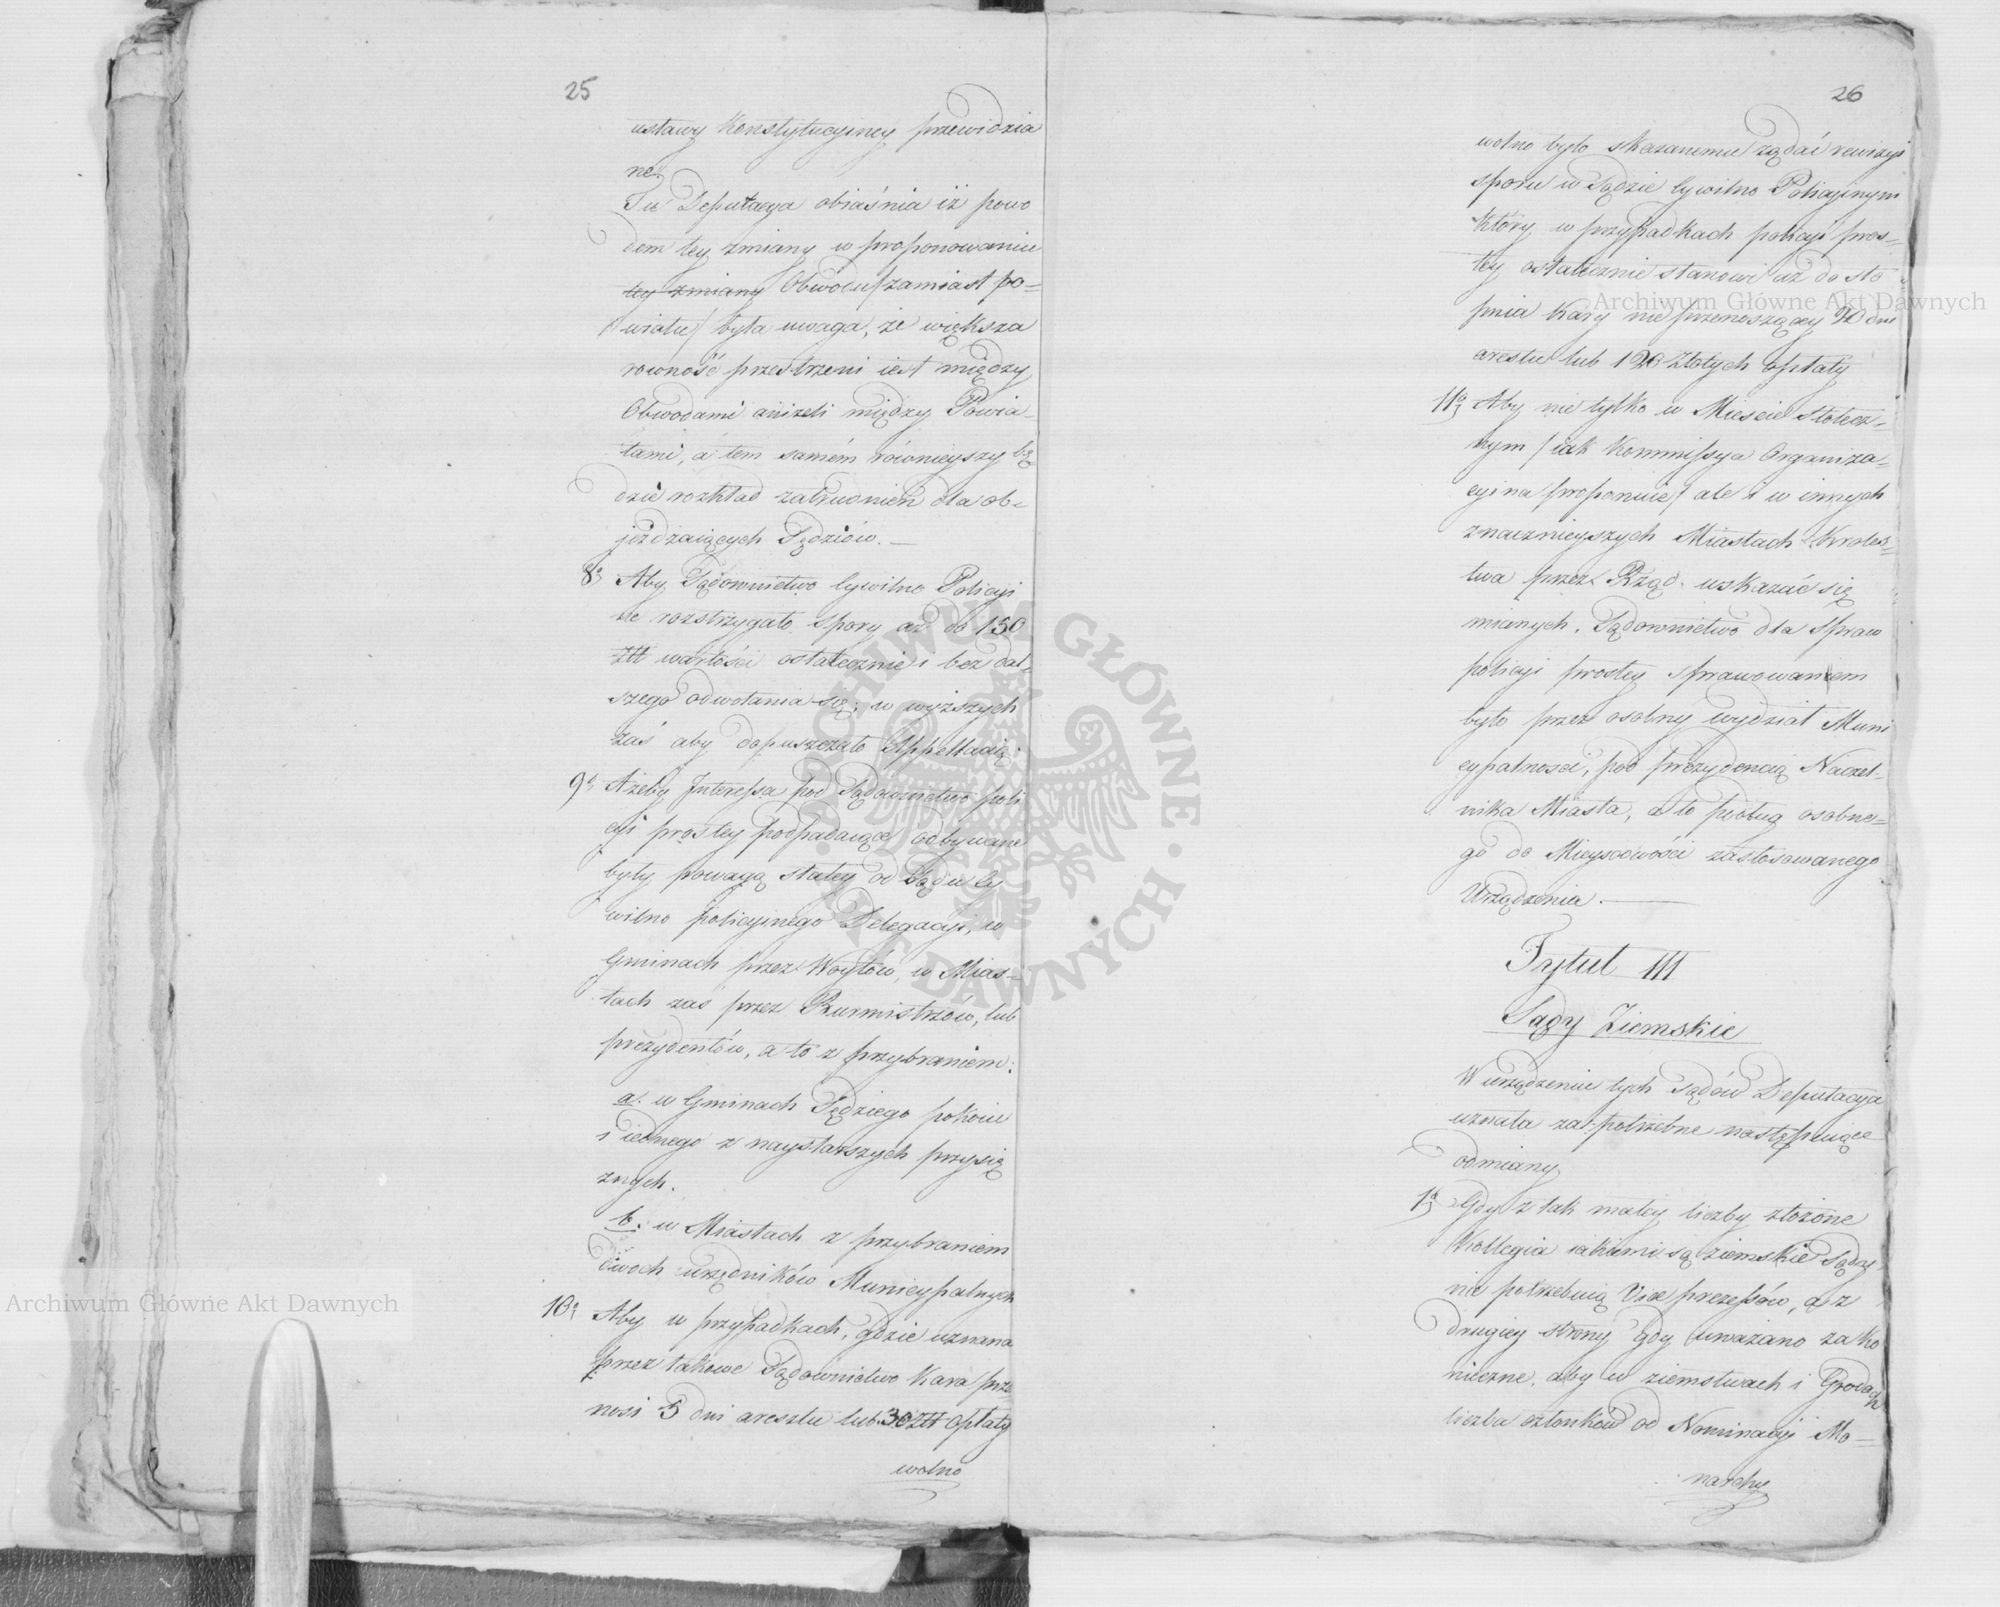 25
ustawy Konstytucyiney przewidzia
ne.
Tu Deputacya obiaśnia iż powo
dem tey zmiany w proponowaniu
tey zmiany Obwodu /zamiast po=
wiatu/ była uwaga, że większa
rowność przestrzeni iest między
Obwodami aniżeli między Powia-
tami, a tem samém rówieyszy bę-
dzie rozkład zatrudnień dla ob-
jeżdzaiących Sędziów. —
8º Aby Sądownictwo Cywilno Policyi
ne rozstrzygało spory aż do 150
Złł wartości ostatecznie i bez dal-
szego odwołania się; w wyższych
zaś aby dopuszczało Appellacią:
9º Ażeby Interessa pod Sądownictwo poli
cyi prostey podpadaiące odbywane
były powagą stałey od Sądu Cy
wilno policyinego Delegacyi, w
Gminach przez Woytów, w Mias-
tach zaś przez Burmistrzów, lub
prezydentów, a to z przybraniem:
a. w Gminach Sędziego pokoiu
i iednego z naystarszych przysię
znych.
b. w Miastach z przybraniem
dwoch urzędników Municypalnych
10º Aby w przypadkach, gdzie uznana
przez takowe Sądownictwo Kara prze
nosi 5 dni aresztu lub 30 złł opłaty
wolno
26
wolno było skazanemu żądać rewizyi
sporu w Sądzie Cywilno Policyinym
który w przypadkach policyi pros=
tey ostatecznie stanowi aż do sto
pnia Kary nie przenoszącey dni
aresztu lub złotych opłaty
11º Aby nie tylko w Mieście Stołecz-
nym /iak Kommissya Organiza-
cyina proponuie/ ale i w innych
znacznieyszych Miastach Kroles=
twa przez Rząd wskazać się
mianych, Sądownictwo dla Spraw
policyi prostey sprawowanem
było przez osobny wydział Muni
cypalności, pod prezydencią Naczel-
nika Miasta, a to podług osobne=
go do Mieyscowości zastosowanego
Urządzenia. —
Tytuł III
Sądy Ziemskie
W urządzeniu tych Sądów Deputacya
uznała za potrzebne następuiące
odmiany
1º Gdy z tak małey liczby złożone
Kollegia iakiemi są ziemskie Sądy
nie potrzebuią Vice prezesów, a z
drugiey strony gdy uważano za ko
nieczne, aby w ziemstwach i Grodach
liczba członków od Nominacyi Mo=
narchy
Archiwum Główne Akt Dawnych
Archiwum Główne Akt Dawnych
ARCHIWUM GŁÓWNE AKT DAWNYCH